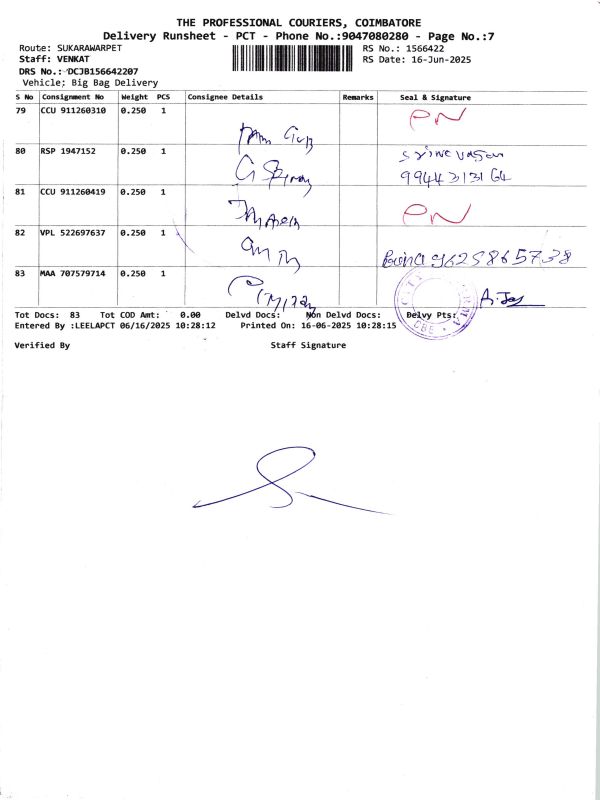 THE PROFESSIONAL COURIERS, COIMBATORE
Delivery Runsheet - PCT - Phone No.:9047080280 - Page No.:7
Route: SUKARAWARPET
RS No.: 1566422
Staff: VENKAT
RS Date: 16-Jun-2025
DRS No.: DCJB156642207
Vehicle; Big Bag Delivery
S No Consignment No Weight PCS Consignee Details Remarks Seal & Signature
79 CCU 911260310 0.250 1 PN
80 RSP 1947152 0.250 1
9944313164
81 CCU 911260419 0.250 1 PN
82 VPL 522697637 0.250 1 9625865738
83 MAA 707579714 0.250 1
CITY
CBE
Tot Docs: 83 Tot COD Amt: 0.00 Delvd Docs: Non Delvd Docs: Delvy Pts:
Entered By :LEELAPCT 06/16/2025 10:28:12 Printed On: 16-06-2025 10:28:15
Verified By Staff Signature